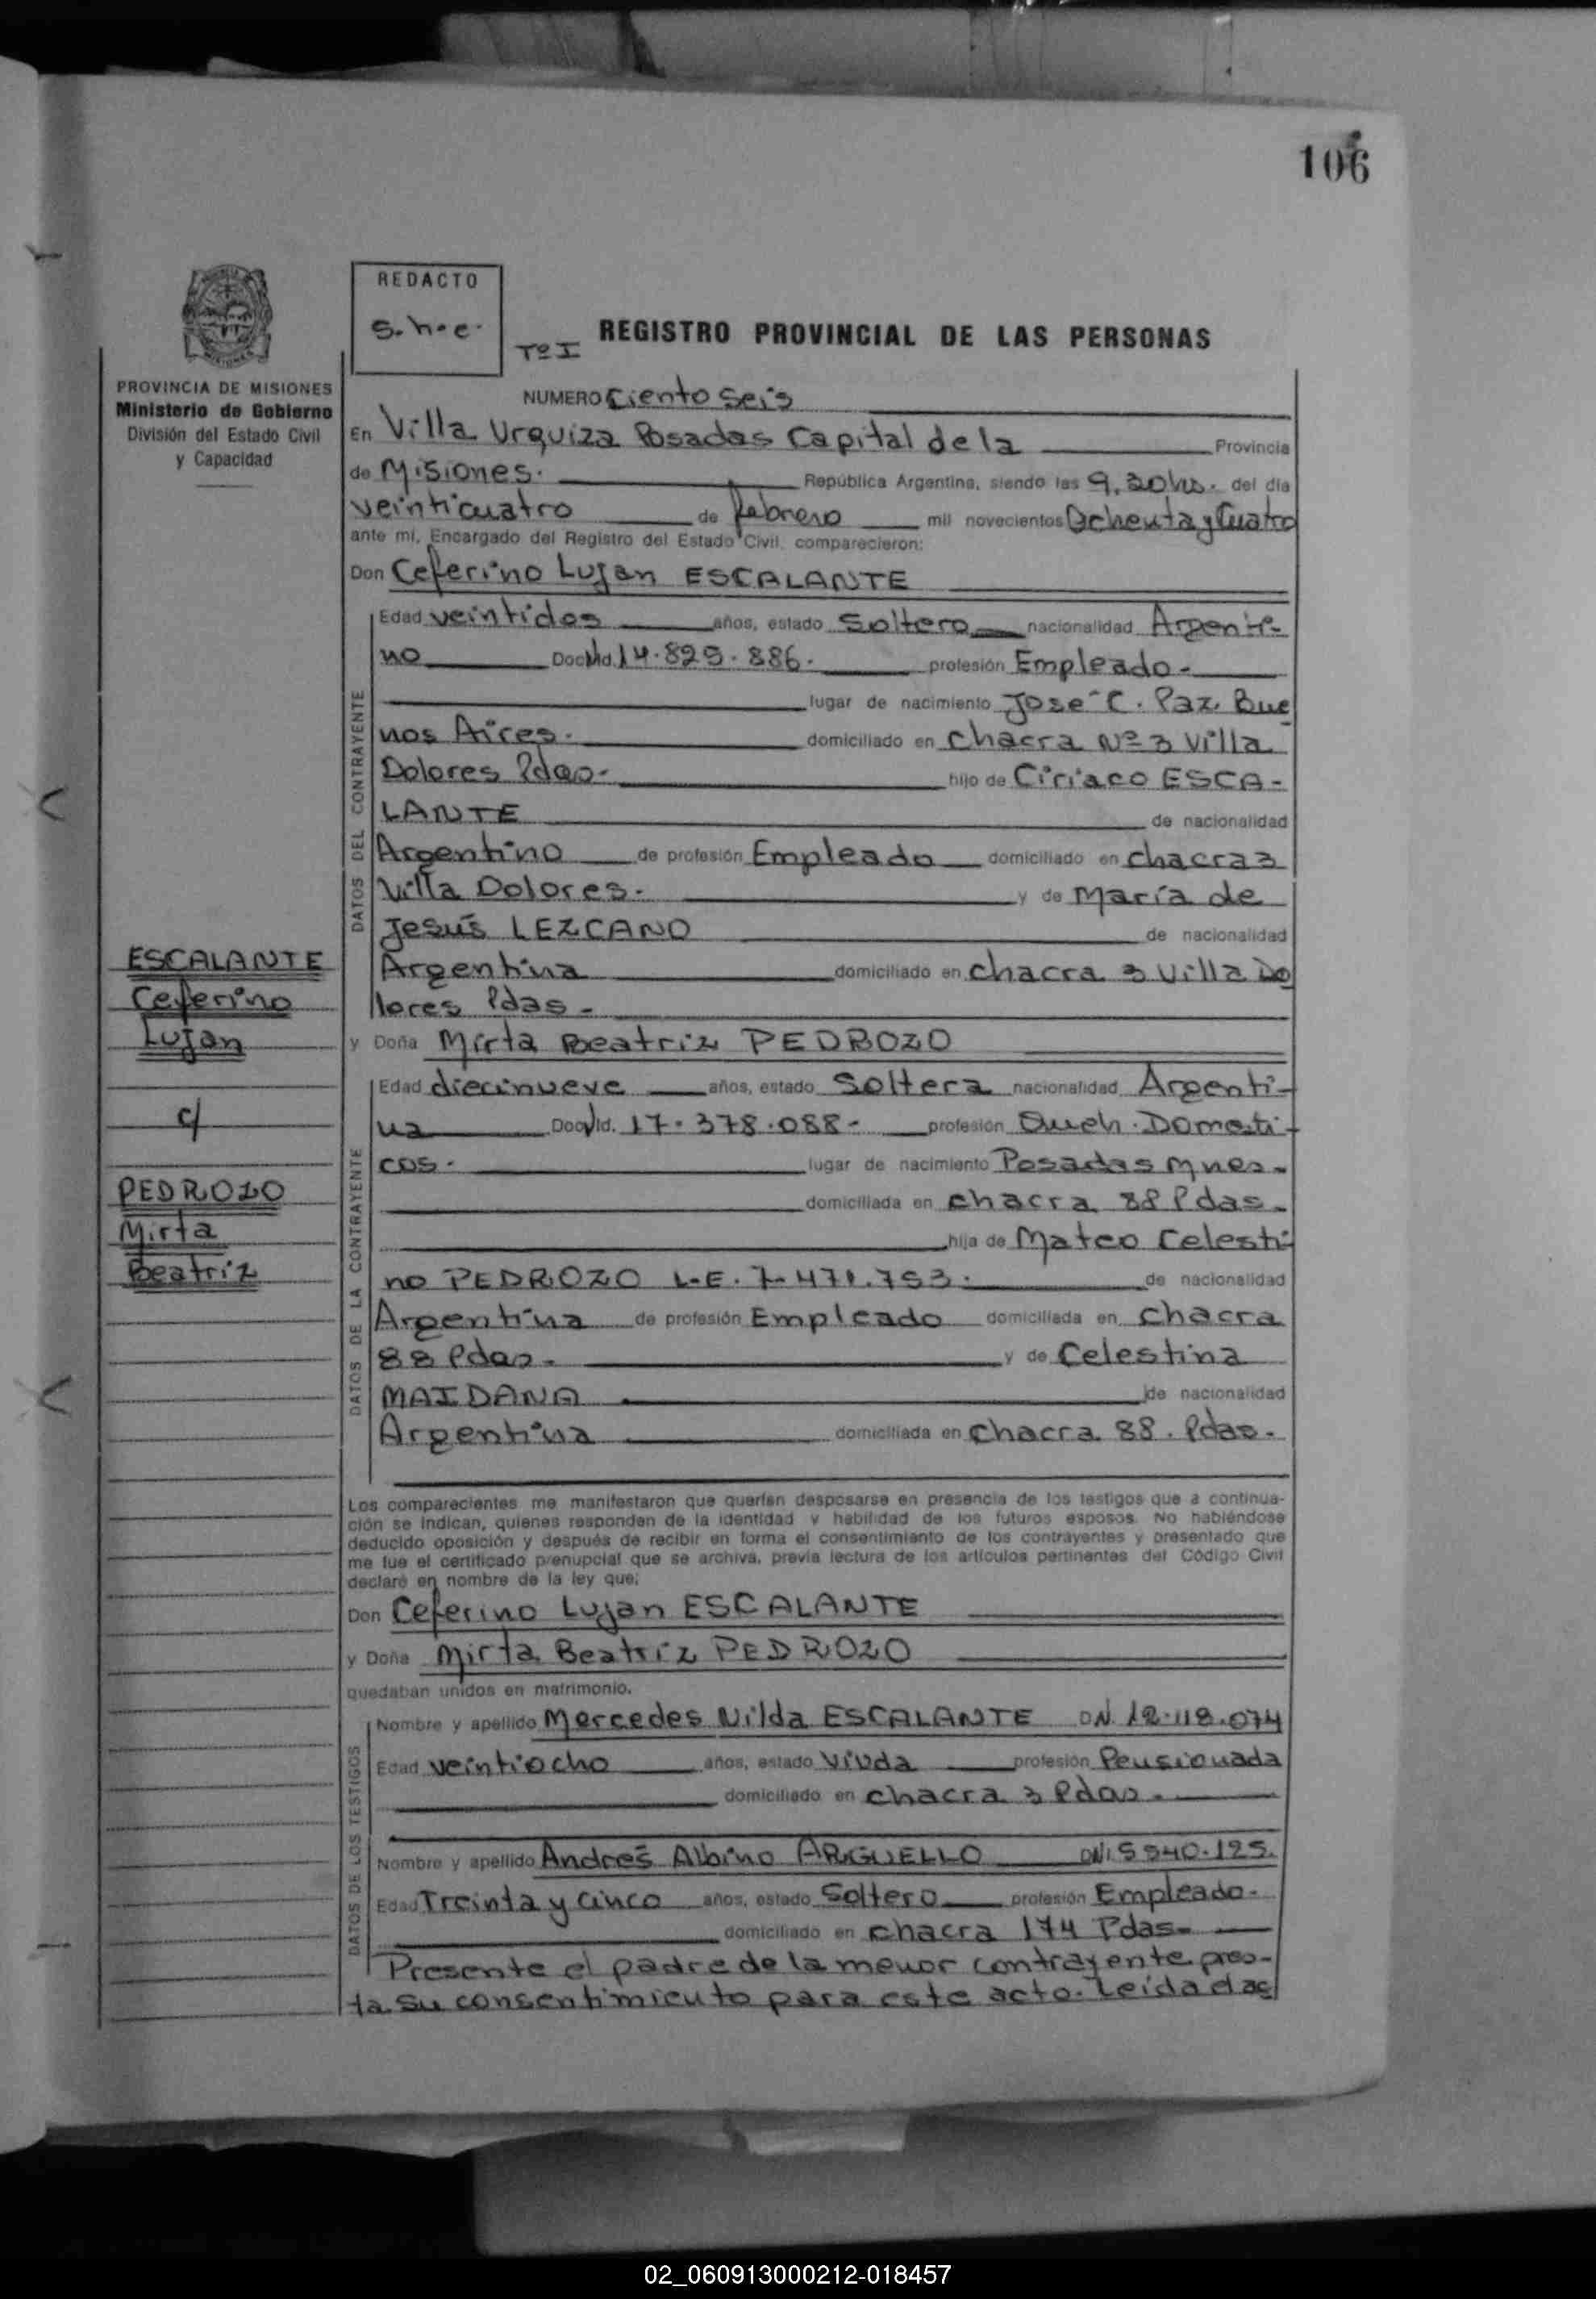 106
REDACTO
s.h.e.
Tº I
REGISTRO PROVINCIAL DE LAS PERSONAS
PROVINCIA DE MISIONES
Ministerio de Gobierno
División del Estado Civil
y Capacidad
NUMERO Ciento Seis
En Villa Urquiza Posadas Capital de la Provincia
de Misiones. República Argentina, siendo las 9,30 hs. del día
veinticuatro de febrero mil novecientos Ochenta y Cuatro
ante mí, Encargado del Registro del Estado Civil, comparecieron:
Don Ceferino Lujan ESCALANTE
Edad veintidos años, estado Soltero nacionalidad Argenti-
no Doc. Id. 14.829.886. profesión Empleado.
lugar de nacimiento José C. Paz. Bue
nos Aires. domiciliado en Chacra Nº 3 Villa
Dolores Pdas. hijo de Ciriaco ESCA-
LANTE de nacionalidad
Argentino de profesión Empleado domiciliado en Chacra 3
Villa Dolores. y de María de
Jesús LEZCANO de nacionalidad
Argentina domiciliado en Chacra 3 Villa Do
lores Pdas.
y Doña Mirta Beatriz PEDROZO
Edad diecinueve años, estado Soltera nacionalidad Argenti-
na Doc. Id. 17.378.088- profesión Queh. Domesti-
cos. lugar de nacimiento Posadas Mnes.
domiciliada en Chacra 88 Pdas.
hija de Mateo Celesti-
no PEDROZO L.E. 7.471.753. de nacionalidad
Argentina de profesión Empleado domiciliada en Chacra
88 Pdas. y de Celestina
MAIDANA de nacionalidad
Argentina domiciliada en Chacra 88. Pdas.
ESCALANTE
Ceferino
Lujan
c/
PEDROZO
Mirta
Beatriz
DATOS DEL CONTRAYENTE
DATOS DE LA CONTRAYENTE
Los comparecientes me manifestaron que querían desposarse en presencia de los testigos que a continua-
ción se indican, quienes responden de la identidad y habilidad de los futuros esposos. No habiéndose
deducido oposición y después de recibir en forma el consentimiento de los contrayentes y presentado que
me fue el certificado prenupcial que se archiva, previa lectura de los artículos pertinentes del Código Civil
declaré en nombre de la ley que:
Don Ceferino Lujan ESCALANTE
y Doña Mirta Beatriz PEDROZO
quedaban unidos en matrimonio.
DATOS DE LOS TESTIGOS
Nombre y apellido Mercedes Nilda ESCALANTE DNI. 12.118.074
Edad veintiocho años, estado Viuda profesión Pensionada
domiciliado en Chacra 3 Pdas.
Nombre y apellido Andres Albino ARGUELLO DNI 5 540.125.
Edad Treinta y cinco años, estado Soltero profesión Empleado.
domiciliado en Chacra 174 Pdas.
Presente el padre de la menor contrayente, pres-
ta su consentimiento para este acto. Leída el ac
02_060913000212-018457